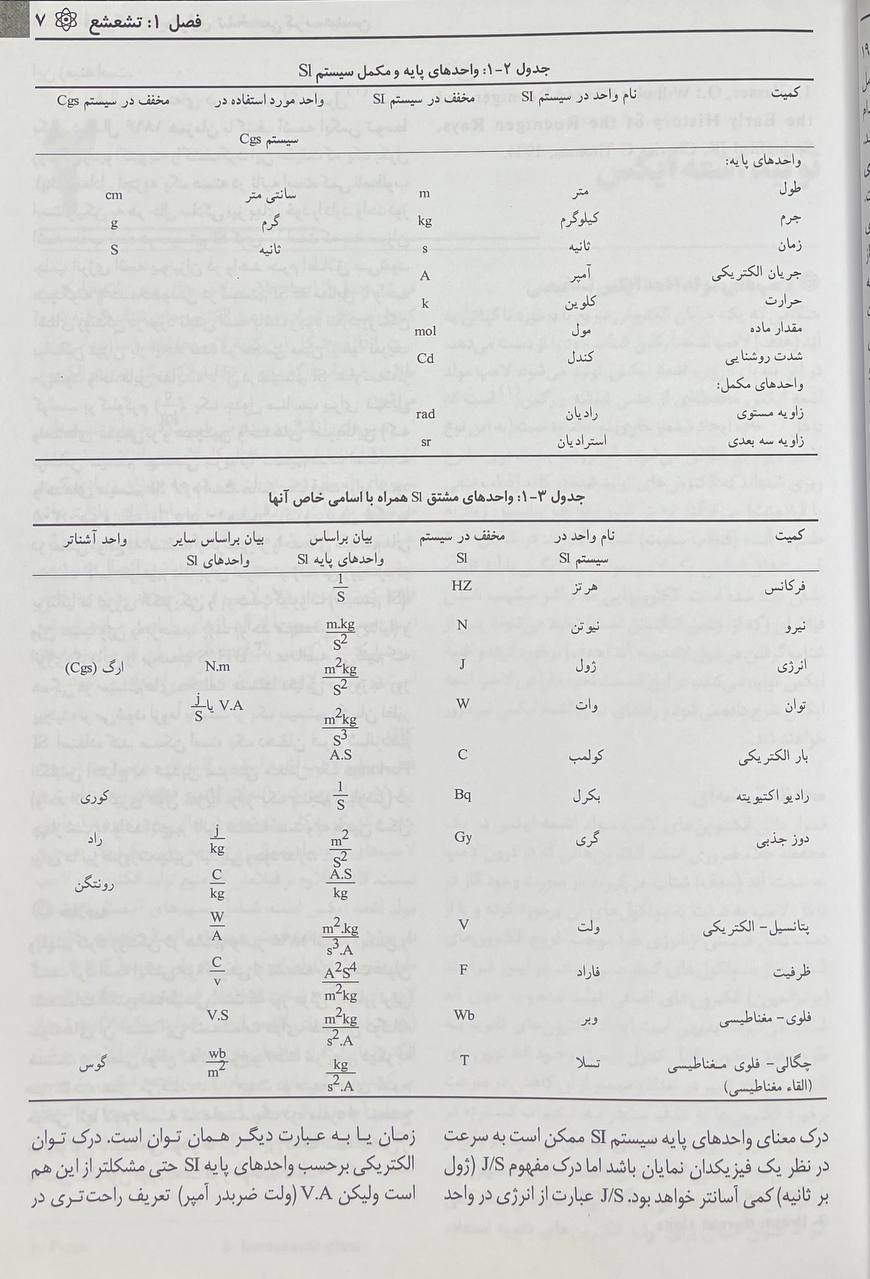 فصل ۱: تشعشع ۷
جدول ۲-۱: واحدهای پایه و مکمل سیستم SI
کمیت نام واحد در سیستم SI مخفف در سیستم SI واحد مورد استفاده در مخفف در سیستم Cgs
سیستم Cgs
واحدهای پایه:
طول متر m سانتی متر cm
جرم کیلوگرم kg گرم g
زمان ثانیه s ثانیه S
جریان الکتریکی آمپر A
حرارت کلوین k
مقدار ماده مول mol
شدت روشنایی کندل Cd
واحدهای مکمل:
زاویه مستوی رادیان rad
زاویه سه بعدی استرادیان sr
جدول ۳-۱: واحدهای مشتق SI همراه با اسامی خاص آنها
کمیت نام واحد در مخفف در سیستم بیان براساس بیان براساس سایر واحد آشناتر
سیستم SI SI واحدهای پایه SI واحدهای SI
فرکانس هرتز HZ 1/S
نیرو نیوتن N m.kg/S²
انرژی ژول J m²kg/S² N.m ارگ (Cgs)
توان وات W m²kg/S³ V.A یا j/S
بار الکتریکی کولمب C A.S
رادیو اکتیویته بکرل Bq 1/S کوری
دوز جذبی گری Gy m²/S² j/kg راد
A.S/kg C/kg رونتگن
پتانسیل- الکتریکی ولت V m².kg/s³.A W/A
ظرفیت فاراد F A²S⁴/m²kg C/v
فلوی- مغناطیسی وبر Wb m²kg/s².A V.S
چگالی- فلوی مغناطیسی تسلا T kg/s².A wb/m² گوس
(القاء مغناطیسی)
درک معنای واحدهای پایه سیستم SI ممکن است به سرعت
در نظر یک فیزیکدان نمایان باشد اما درک مفهوم J/S (ژول
بر ثانیه) کمی آسانتر خواهد بود. J/S عبارت از انرژی در واحد
زمان یا به عبارت دیگر همان توان است. درک توان
الکتریکی برحسب واحدهای پایه SI حتی مشکلتر از این هم
است ولیکن V.A (ولت ضربدر آمپر) تعریف راحت‌تری در